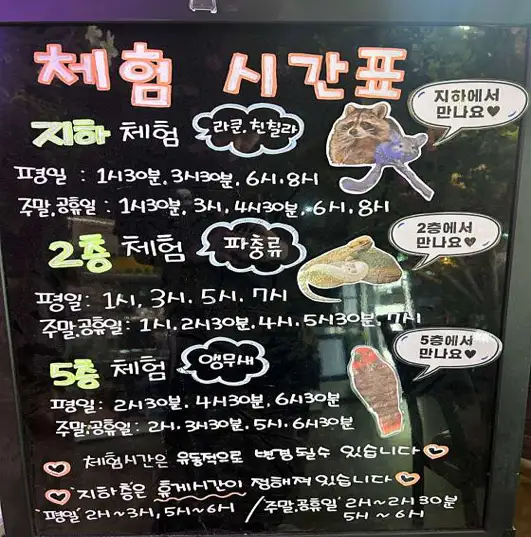 체험 시간표
지하에서
만나요♥
지하 체험
라쿤.친칠라
평일 : 1시30분, 3시30분, 6시.8시
주말.공휴일 : 1시30분, 3시, 4시30분, 6시, 8시
2층에서
만나요♥
2층 체험
파충류
평일: 1시, 3시. 5시. 7시
주말.공휴일: 1시. 2시30분. 4시. 5시30분. 7시
5층에서
만나요♥
5층 체험
앵무새
평일: 2시30분. 4시30분, 6시30분
주말.공휴일: 2시. 3시30분. 5시. 6시30분
♡ 체험시간은 유동적으로 변경될수 있습니다 ♡
♡ '지하층'은 휴게시간이 정해져 있습니다 ♡
'평일' 2시~3시, 5시~6시 / '주말.공휴일' 2시~2시30분
5시~6시